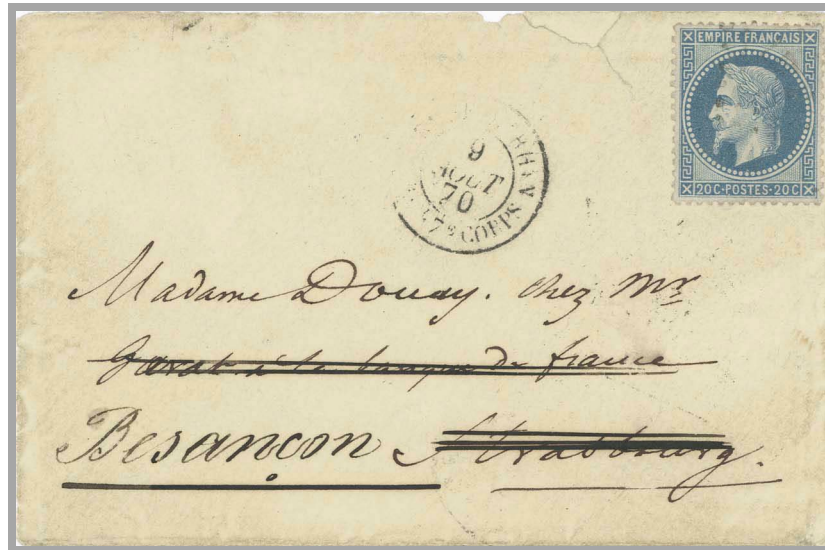 EMPIRE FRANCAIS
20C-POSTES-20C
RHIN
9
AOUT
70
7e CORPS A
Madame Douay. chez Mr
Garat à la banque de france
Besançon Strasbourg.